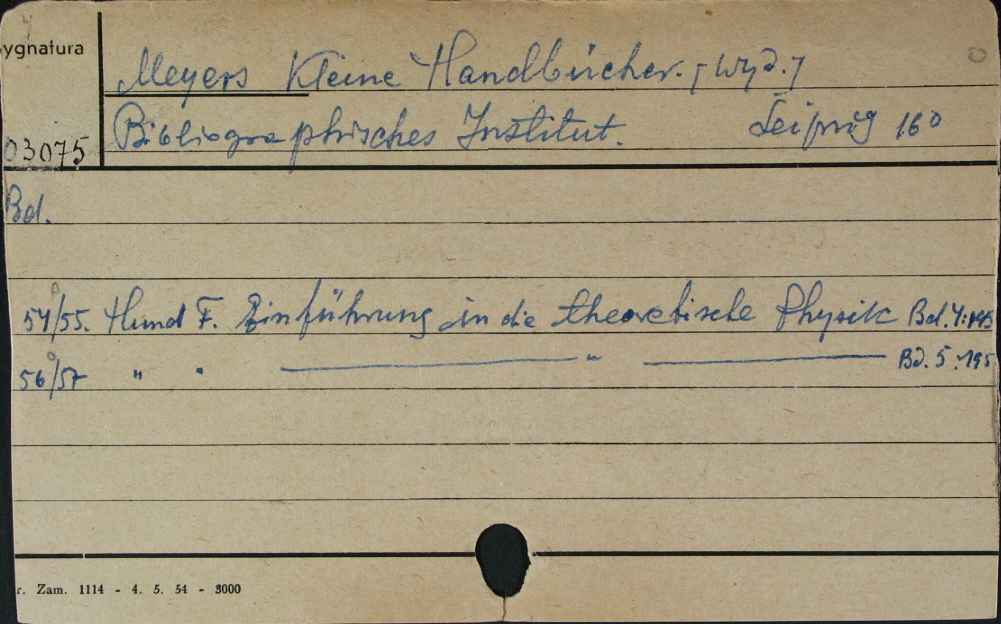 ygnatura
Meyers Kleine Handbücher. [Wyd.]
Bibliographisches Institut. Leipzig 16°
03075
Bd.
54/55. Hund F. Einführung in die theoretische Physik Bd. 4:
56/57 " " — " — Bd. 5.
r. Zam. 1114 - 4. 5. 54 - 3000